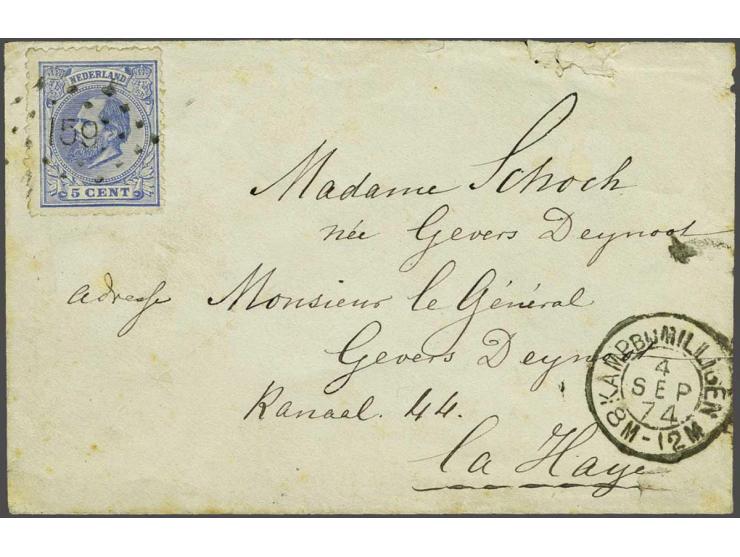 NEDERLAND
159
5 CENT
Madame Schoch
née Gevers Deynoot
adresse Monsieur le Général
Gevers Deynoot
Kanaal. 44.
La Haye
KAMP BIJ MILLIGEN
4
SEP
74
8M-12M